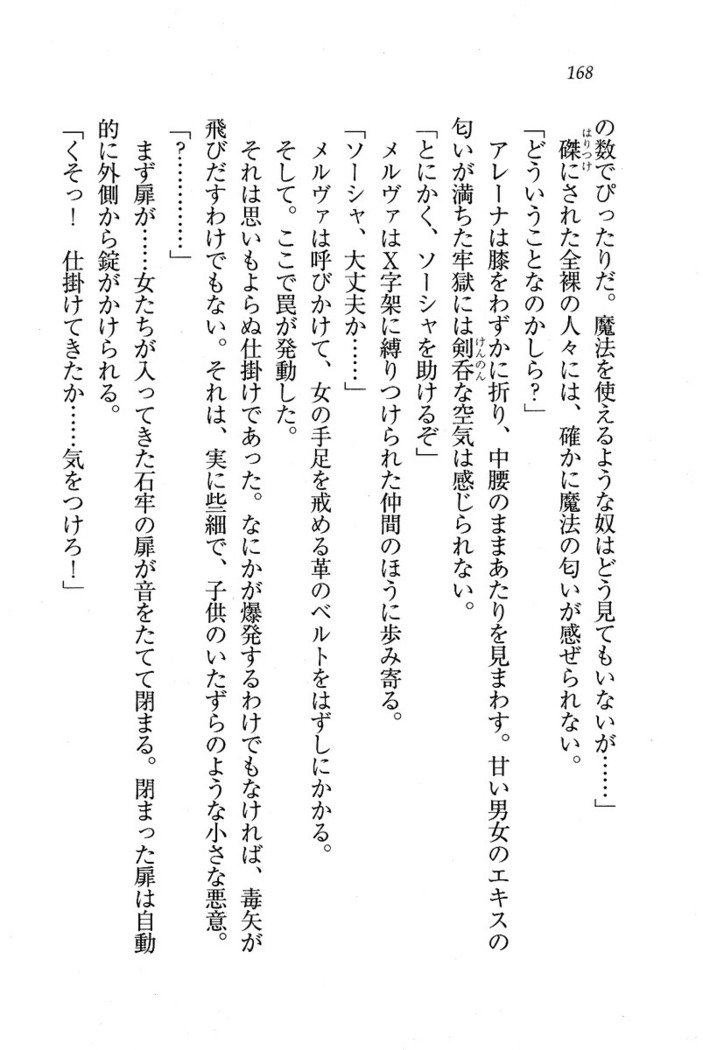 168
の数でぴったりだ。魔法を使えるような奴はどう見てもいないが……」
磔にされた全裸の人々には、確かに魔法の匂いが感ぜられない。
はりつけ
「どういうことなのかしら？」
アレーナは膝をわずかに折り、中腰のままあたりを見まわす。甘い男女のエキスの
匂いが満ちた牢獄には剣呑な空気は感じられない。
けんのん
「とにかく、ソーシャを助けるぞ」
メルヴァはX字架に縛りつけられた仲間のほうに歩み寄る。
「ソーシャ、大丈夫か……」
メルヴァは呼びかけて、女の手足を戒める革のベルトをはずしにかかる。
そして。ここで罠が発動した。
それは思いもよらぬ仕掛けであった。なにかが爆発するわけでもなければ、毒矢が
飛びだすわけでもない。それは、実に些細で、子供のいたずらのような小さな悪意。
「？…………」
まず扉が……女たちが入ってきた石牢の扉が音をたてて閉まる。閉まった扉は自動
的に外側から錠がかけられる。
「くそっ！　仕掛けてきたか……気をつけろ！」